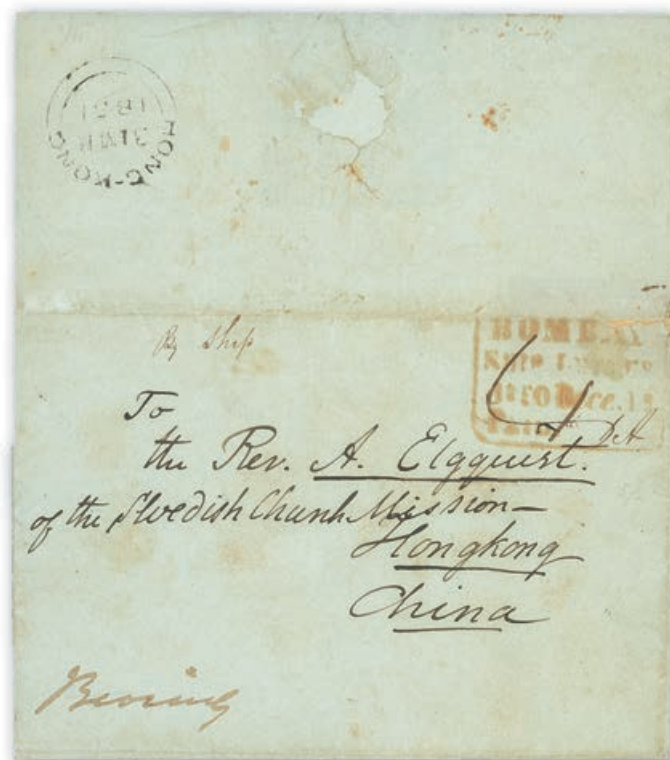 HONG-KONG
31 MR
1851
By Ship
BOMBAY
4
To
the Rev. A. Elgquist.
of the Swedish Church Mission—
Hongkong
China
Bearing